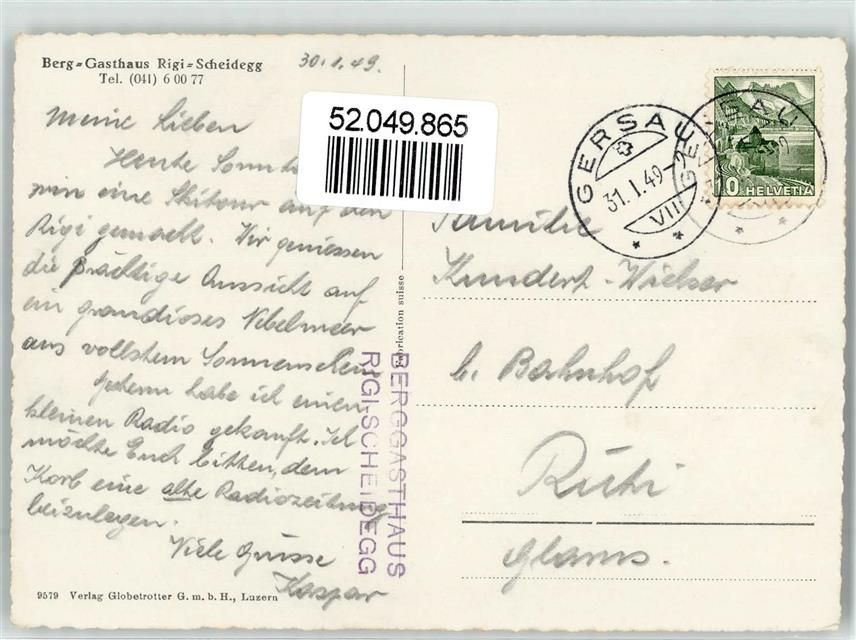 Berg-Gasthaus Rigi-Scheidegg
Tel. (041) 6 00 77
30.1.49.
52.049.865
Meine Lieben
Heute
wir eine Skitour auf den
Rigi gemacht. Wir geniessen
die prächtige Aussicht auf
ein grandioses Nebelmeer
aus vollstem Sonnenschein
Gestern habe ich einen
kleinen Radio gekauft. Ich
möchte Euch bitten, dem
Korb eine alte Radiozeitung
beizulegen.
Viele Grüsse
Kaspar
9579 Verlag Globetrotter G. m. b. H., Luzern
Fabrication suisse
BERGGASTHAUS
RIGI-SCHEIDEGG
GERSAU
31.1.49-
VIII
GERSAU
10 HELVETIA
Familie
Kundert-
b. Bahnhof
Rüti
Glarus.